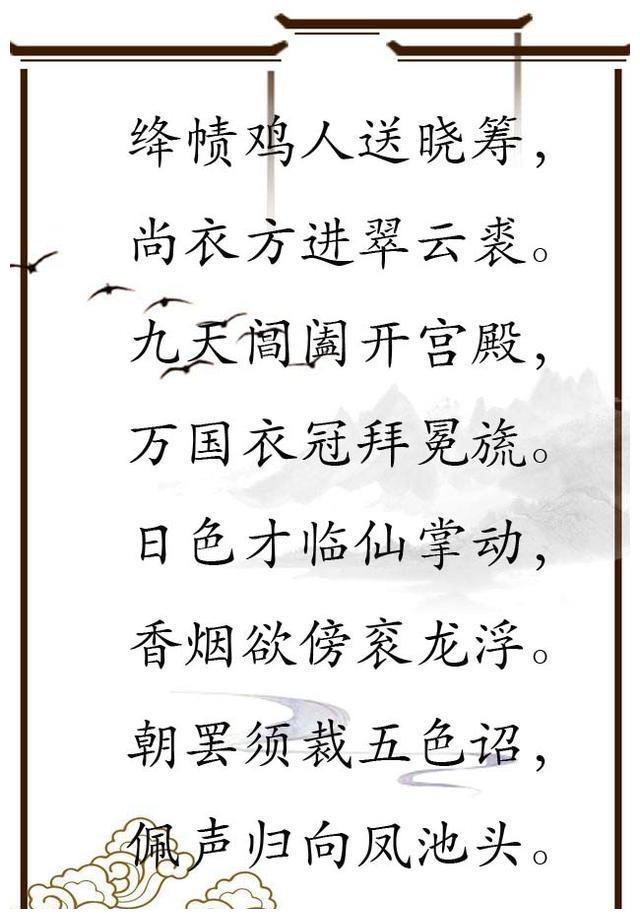 绛帻鸡人送晓筹，
尚衣方进翠云裘。
九天阊阖开宫殿，
万国衣冠拜冕旒。
日色才临仙掌动，
香烟欲傍衮龙浮。
朝罢须裁五色诏，
佩声归向凤池头。